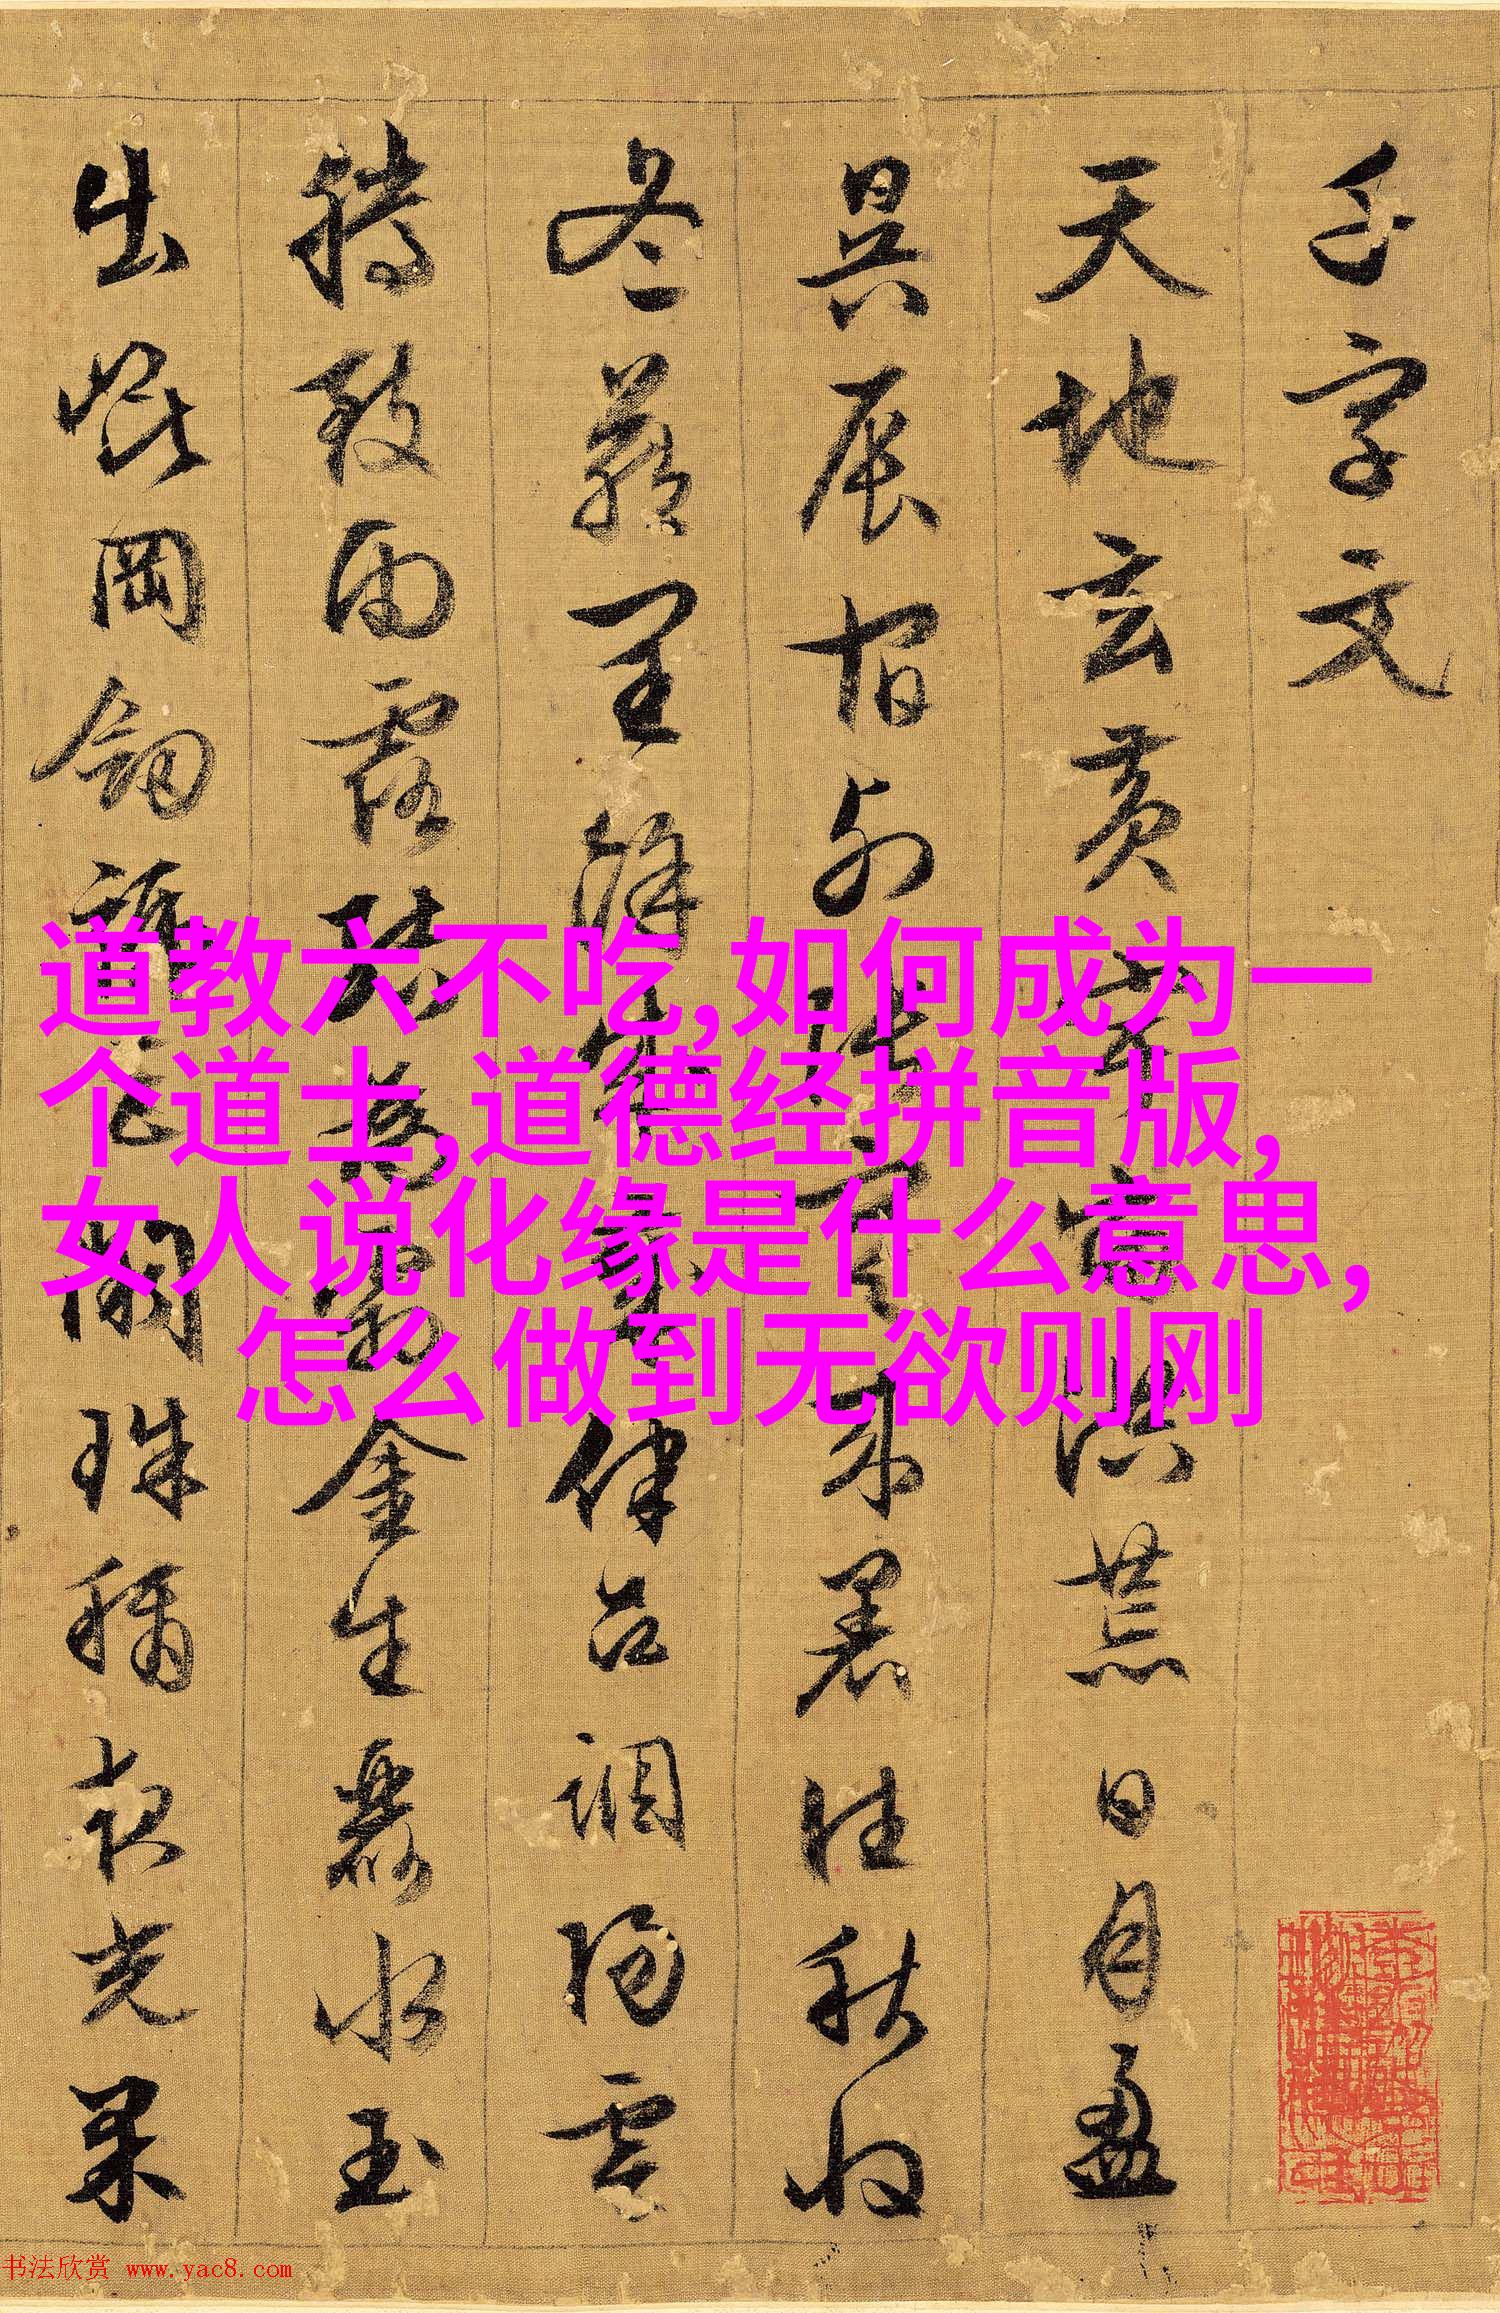 千字文
天地玄黃宇宙洪荒日月盈
昃辰宿列張寒來暑往秋收
冬藏閏餘成歲律呂調陽雲
騰致雨露結為霜金生麗水玉
出崑岡劒號巨闕珠稱夜光果
道教六不吃,如何成为一
个道士,道德经拼音版,
女人说化缘是什么意思,
怎么做到无欲则刚
书法欣赏 www.yac8.com